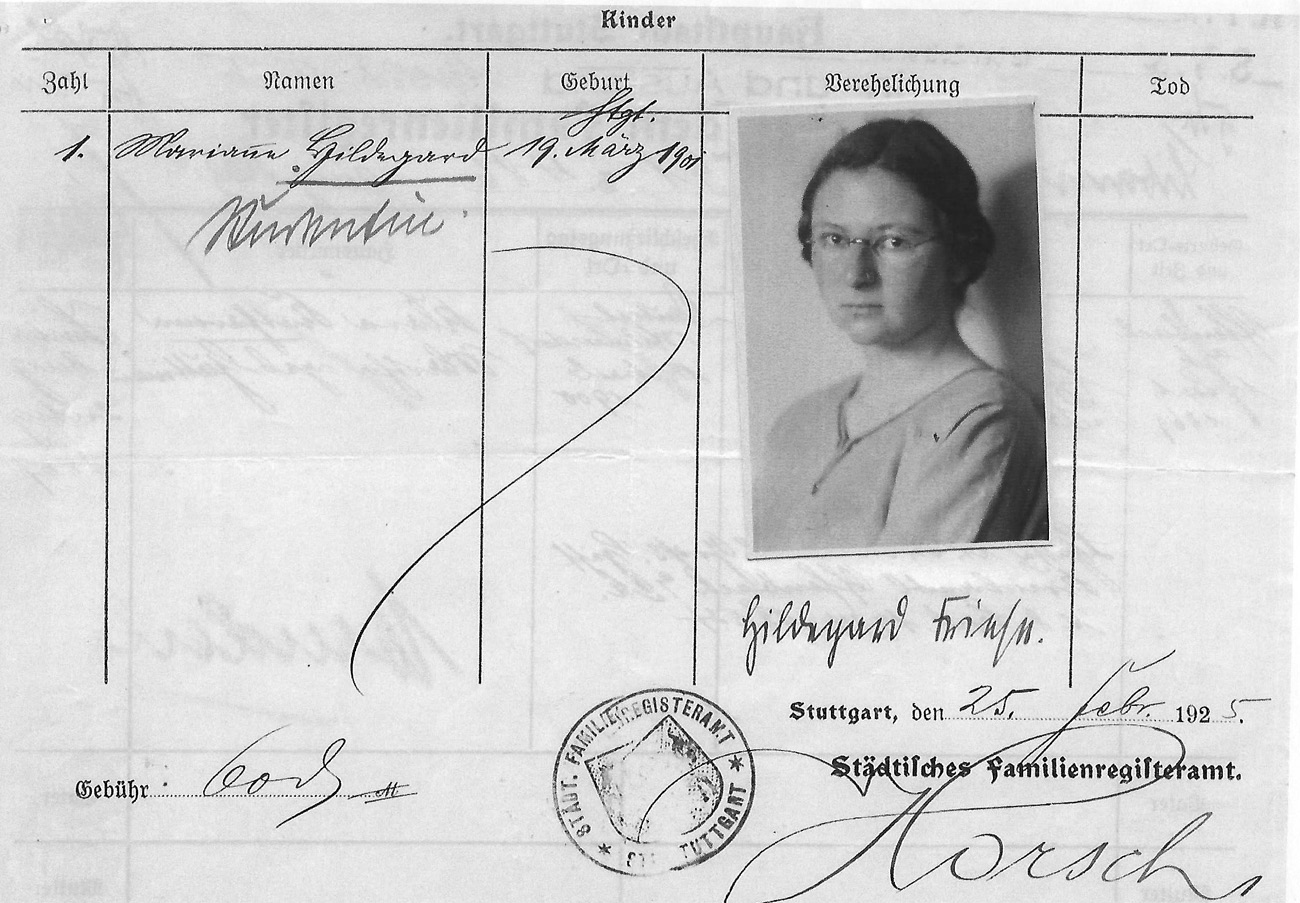 Kinder
Zahl Namen Geburt Verehelichung Tod
Stgt.
1. Marianne Hildegard 19. März 1901
Hildegard Friese.
Stuttgart, den 25. Febr. 1925.
Städtisches Familienregisteramt.
Gebühr: 60 M
STÄDT. FAMILIENREGISTERAMT STUTTGART
Horsch